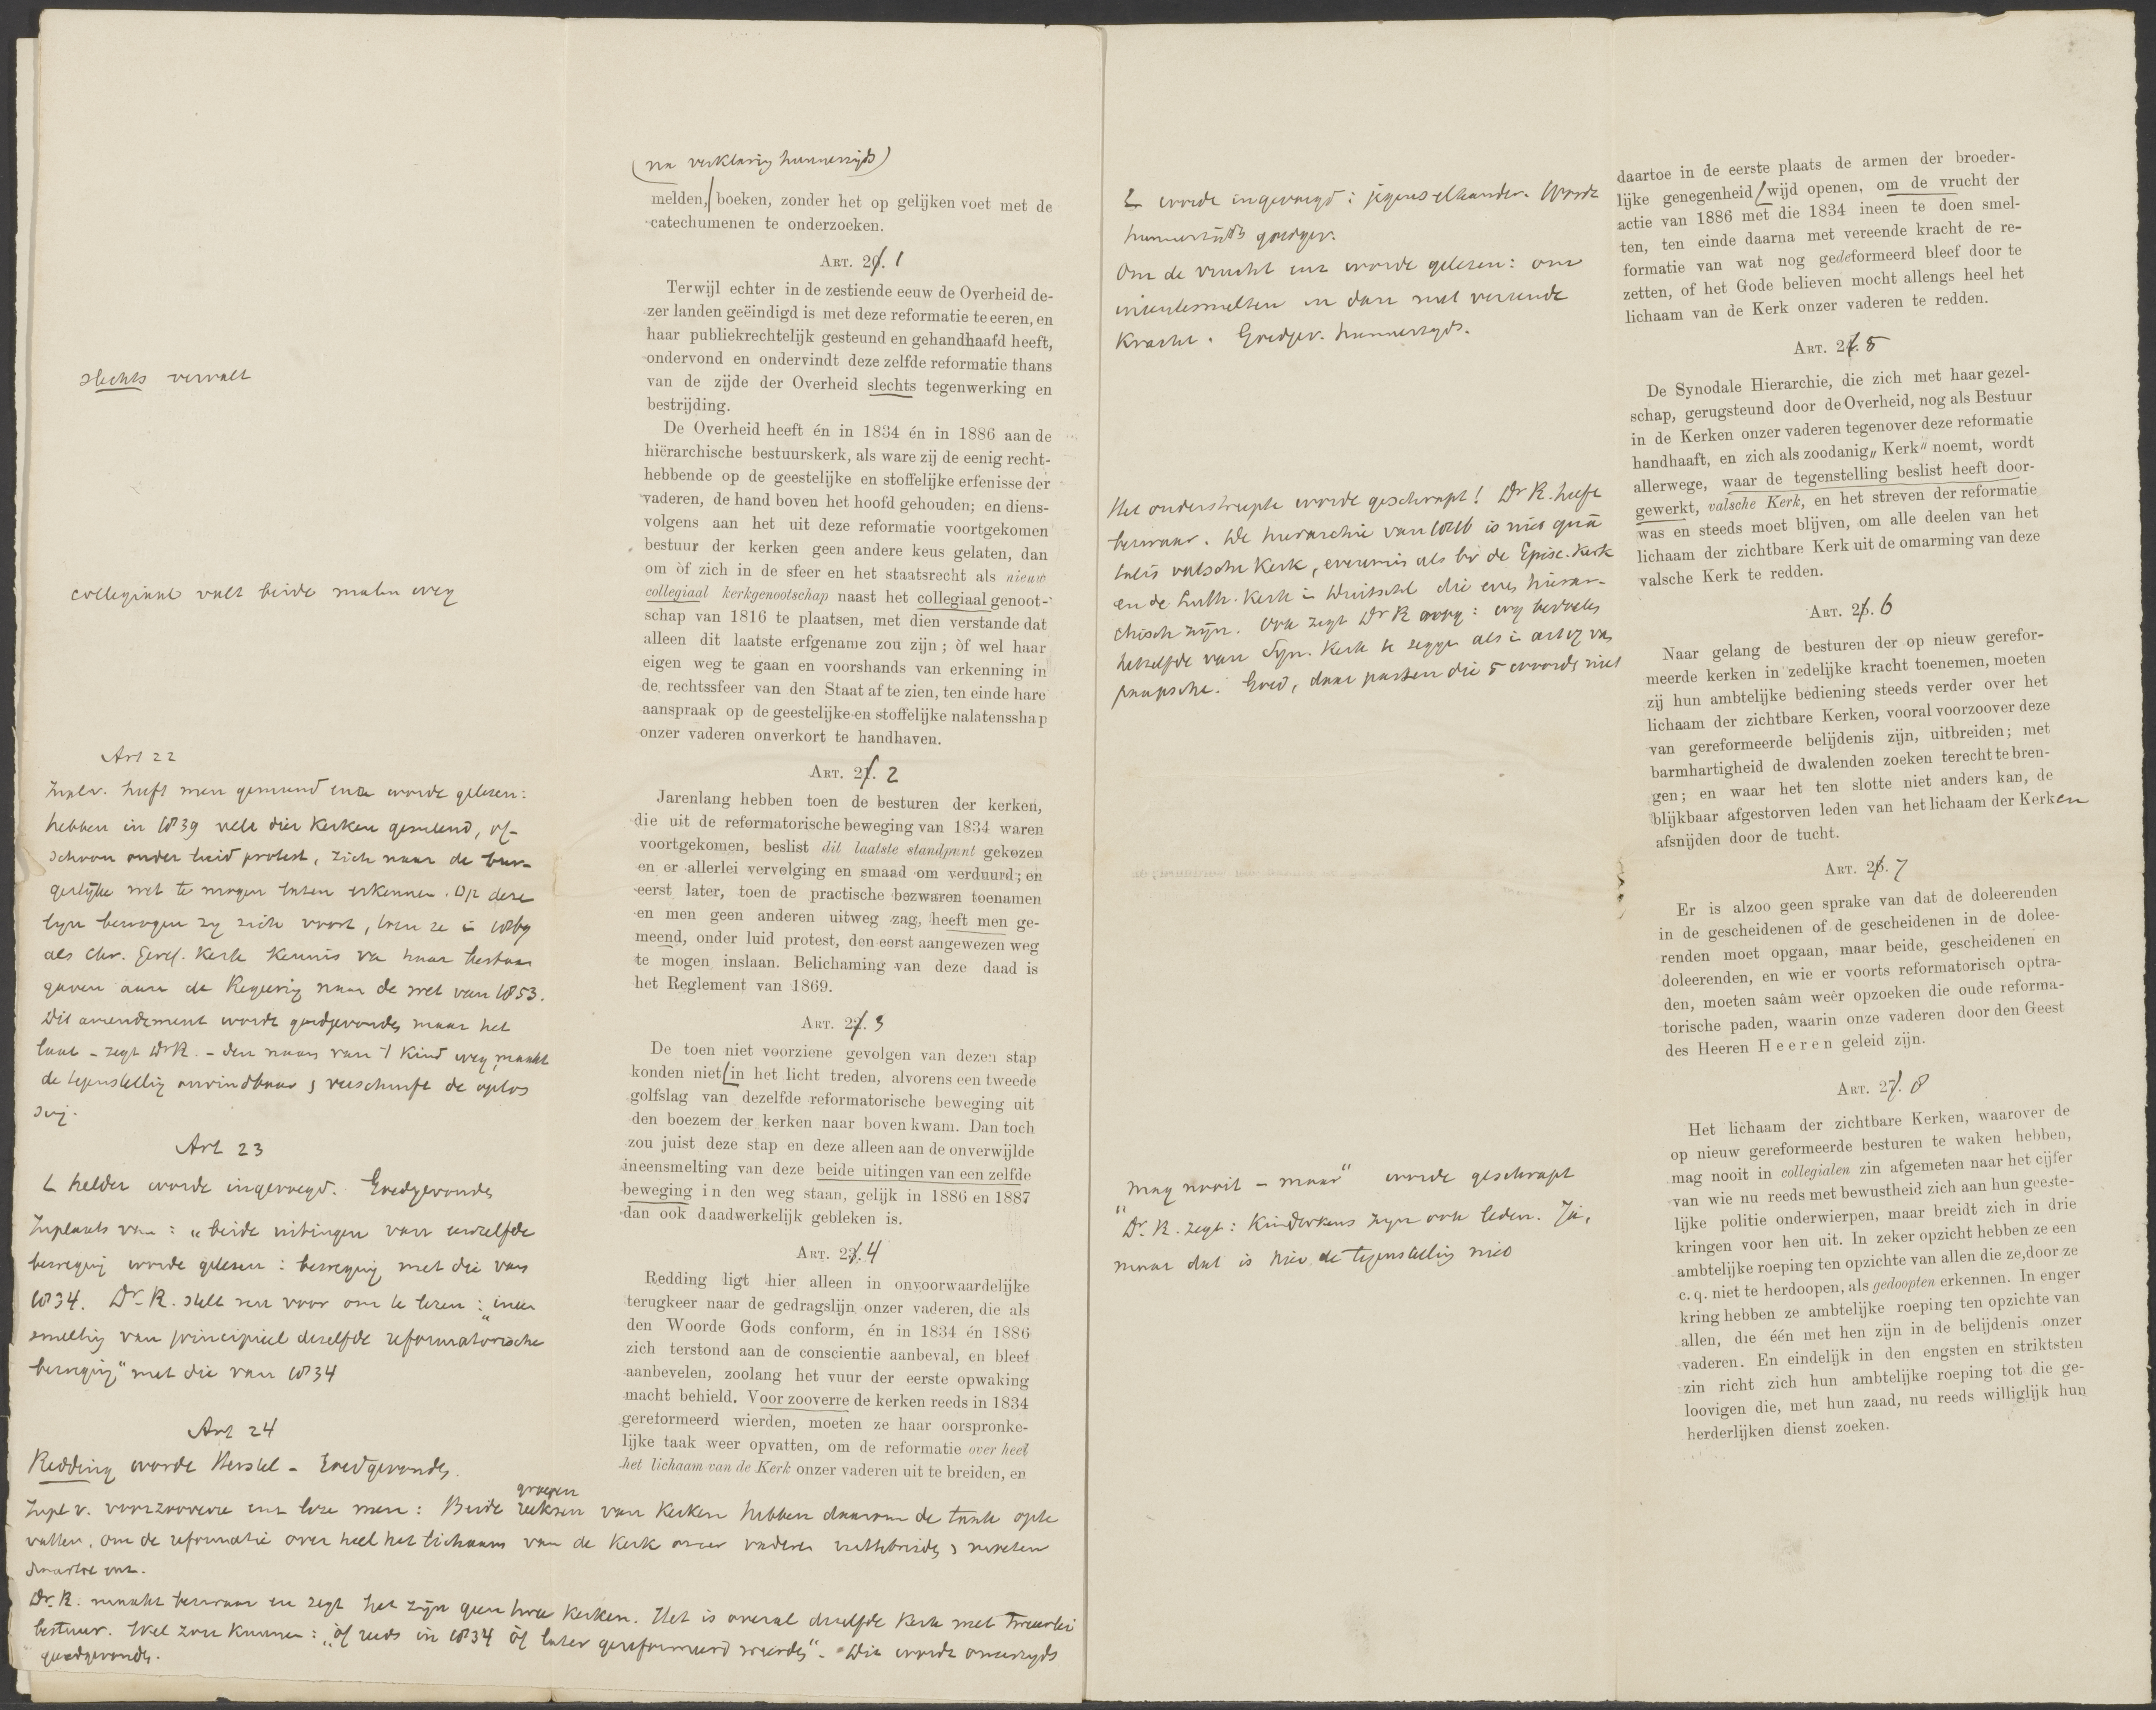 slechts vervalt
collegiaal valt beide malen weg
Art 22
Inpl v. heeft men gemeend enz worde gelezen:
hebben in 1839 vele dier Kerken gemeend, of-
schoon onder luid protest, zich naar de bur-
gerlijke wet te mogen laten erkennen. Op deze
lijn bewogen zij zich voort, toen ze in 1869
als Chr. Geref. Kerk kennis van haar bestaan
gaven aan de Regeering naar de wet van 1853.
Dit amendement wordt goedgevonden maar het
laat - zegt Dr K. - den naam van 't Kind weg, maakt
de tegenstelling onvindbaar & verscherpt de oplos
sing.
Art 23
helder worde ingevoegd. Goedgevonden
Inplaats van: „beide uitingen van eenzelfde
beweging worde gelezen: beweging met die van
1834. Dr. K. stelt nu voor om te lezen: „ineen
smelting van principieel dezelfde reformatorische
beweging" met die van 1834
Art 24
Redding worde Herstel - Goedgevonden.
Inpl v. voorzooverre enz leze men: Beide reeksen groepen van Kerken hebben daarom de taak op te
vatten, om de reformatie over heel het lichaam van de Kerk onzer vaderen uittebreiden & moeten
daartoe enz.
Dr. K. maakt bezwaar en zegt het zijn geen twee Kerken. Het is overal dezelfde Kerk met tweeërlei
bestuur. Wel zou kunnen: „òf reeds in 1834 òf later gereformeerd werden". Dit wordt onzerzijds
goedgevonden.
(na verklaring hunnerzijds)
melden, boeken, zonder het op gelijken voet met de
catechumenen te onderzoeken.
Art. 20. 1
Terwijl echter in de zestiende eeuw de Overheid de-
zer landen geëindigd is met deze reformatie te eeren, en
haar publiekrechtelijk gesteund en gehandhaafd heeft,
ondervond en ondervindt deze zelfde reformatie thans
van de zijde der Overheid slechts tegenwerking en
bestrijding.
De Overheid heeft én in 1834 én in 1886 aan de
hiërarchische bestuurskerk, als ware zij de eenig recht-
hebbende op de geestelijke en stoffelijke erfenisse der
vaderen, de hand boven het hoofd gehouden; en diens-
volgens aan het uit deze reformatie voortgekomen
bestuur der kerken geen andere keus gelaten, dan
om òf zich in de sfeer en het staatsrecht als nieuw
collegiaal kerkgenootschap naast het collegiaal genoot-
schap van 1816 te plaatsen, met dien verstande dat
alleen dit laatste erfgename zou zijn; òf wel haar
eigen weg te gaan en voorshands van erkenning in
de rechtssfeer van den Staat af te zien, ten einde hare
aanspraak op de geestelijke en stoffelijke nalatensshap
onzer vaderen onverkort te handhaven.
Art. 21. 2
Jarenlang hebben toen de besturen der kerken,
die uit de reformatorische beweging van 1834 waren
voortgekomen, beslist dit laatste standpunt gekozen
en er allerlei vervolging en smaad om verduurd; en
eerst later, toen de practische bezwaren toenamen
en men geen anderen uitweg zag, heeft men ge-
meend, onder luid protest, den eerst aangewezen weg
te mogen inslaan. Belichaming van deze daad is
het Reglement van 1869.
Art. 22. 3
De toen niet voorziene gevolgen van dezen stap
konden niet in het licht treden, alvorens een tweede
golfslag van dezelfde reformatorische beweging uit
den boezem der kerken naar boven kwam. Dan toch
zou juist deze stap en deze alleen aan de onverwijlde
ineensmelting van deze beide uitingen van een zelfde
beweging in den weg staan, gelijk in 1886 en 1887
dan ook daadwerkelijk gebleken is.
Art. 23. 4
Redding ligt hier alleen in onvoorwaardelijke
terugkeer naar de gedragslijn onzer vaderen, die als
den Woorde Gods conform, én in 1834 én 1886
zich terstond aan de conscientie aanbeval, en bleef
aanbevelen, zoolang het vuur der eerste opwaking
macht behield. Voor zooverre de kerken reeds in 1834
gereformeerd wierden, moeten ze haar oorspronke-
lijke taak weer opvatten, om de reformatie over heel
het lichaam van de Kerk onzer vaderen uit te breiden, en
worde ingevoegd: jegens elkander. Wordt
hunnerzijds goedgev.
Om de vrucht enz worde gelezen: om
ineentesmelten en dan met vereende
Kracht. Goedgev. hunnerzijds.
Het onderstreepte worde geschrapt! Dr K. heeft
bezwaar. De hierarchie van 1816 is niet quâ
talis valsche Kerk, evenmin als bv de Episc. Kerk
en de Luth. Kerk in Duitschl. die ook hierar-
chisch zijn. Ook zegt Dr K: wij bedoelen
hetzelfde van Syn. Kerk te zeggen als in art 17 van
paapsche. Goed, daar passen die 5 woorden niet
„mag nooit - maar" worde geschrapt
Dr. K. zegt: Kinderkens zijn ook leden. Ja,
maar dat is hier de tegenstelling niet
daartoe in de eerste plaats de armen der broeder-
lijke genegenheid wijd openen, om de vrucht der
actie van 1886 met die 1834 ineen te doen smel-
ten, ten einde daarna met vereende kracht de re-
formatie van wat nog gedeformeerd bleef door te
zetten, of het Gode believen mocht allengs heel het
lichaam van de Kerk onzer vaderen te redden.
Art. 24. 5
De Synodale Hierarchie, die zich met haar gezel-
schap, gerugsteund door de Overheid, nog als Bestuur
in de Kerken onzer vaderen tegenover deze reformatie
handhaaft, en zich als zoodanig „Kerk" noemt, wordt
allerwege, waar de tegenstelling beslist heeft door-
gewerkt, valsche Kerk, en het streven der reformatie
was en steeds moet blijven, om alle deelen van het
lichaam der zichtbare Kerk uit de omarming van deze
valsche Kerk te redden.
Art. 25. 6
Naar gelang de besturen der op nieuw gerefor-
meerde kerken in zedelijke kracht toenemen, moeten
zij hun ambtelijke bediening steeds verder over het
lichaam der zichtbare Kerken, vooral voorzoover deze
van gereformeerde belijdenis zijn, uitbreiden; met
barmhartigheid de dwalenden zoeken terecht te bren-
gen; en waar het ten slotte niet anders kan, de
blijkbaar afgestorven leden van het lichaam der Kerken
afsnijden door de tucht.
Art. 26. 7
Er is alzoo geen sprake van dat de doleerenden
in de gescheidenen of de gescheidenen in de dolee-
renden moet opgaan, maar beide, gescheidenen en
doleerenden, en wie er voorts reformatorisch optra-
den, moeten saâm weêr opzoeken die oude reforma-
torische paden, waarin onze vaderen door den Geest
des Heeren Heeren geleid zijn.
Art. 27. 8
Het lichaam der zichtbare Kerken, waarover de
op nieuw gereformeerde besturen te waken hebben,
mag nooit in collegialen zin afgemeten naar het cijfer
van wie nu reeds met bewustheid zich aan hun geeste-
lijke politie onderwierpen, maar breidt zich in drie
kringen voor hen uit. In zeker opzicht hebben ze een
ambtelijke roeping ten opzichte van allen die ze, door ze
c. q. niet te herdoopen, als gedoopten erkennen. In enger
kring hebben ze ambtelijke roeping ten opzichte van
allen, die één met hen zijn in de belijdenis onzer
vaderen. En eindelijk in den engsten en striktsten
zin richt zich hun ambtelijke roeping tot die ge-
loovigen die, met hun zaad, nu reeds williglijk hun
herderlijken dienst zoeken.